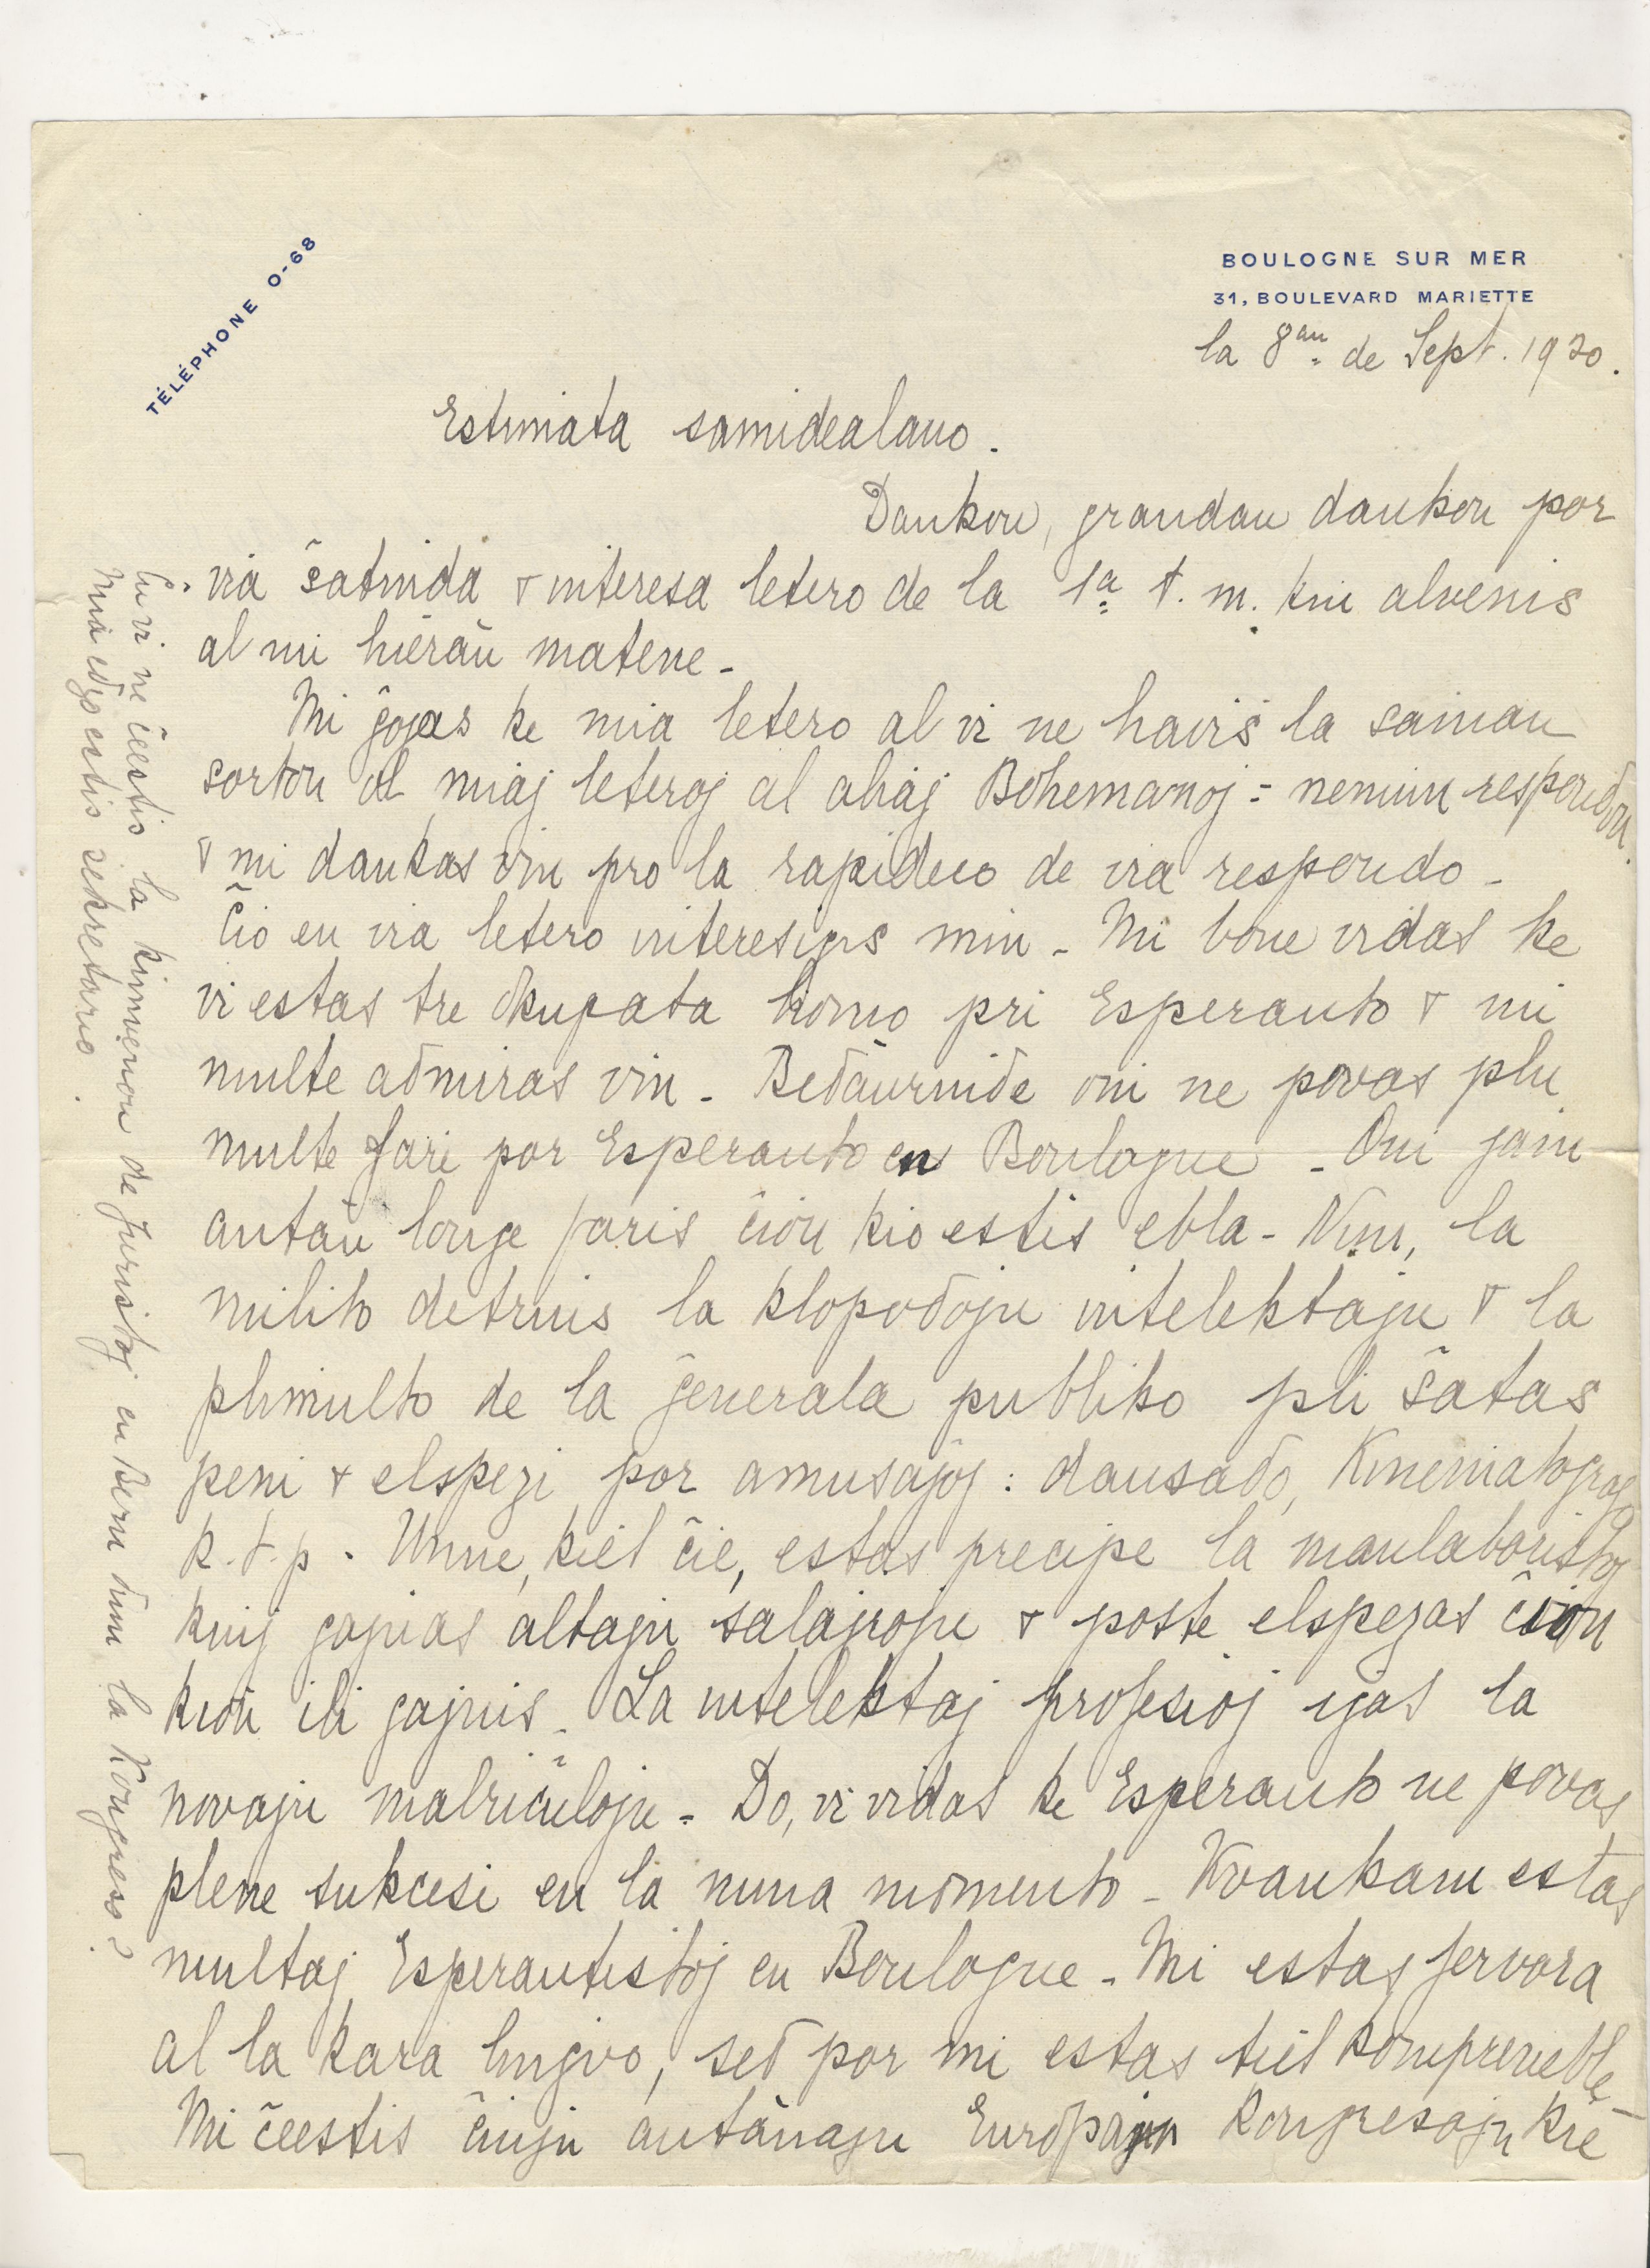 TÉLÉPHONE 0-68
BOULOGNE SUR MER
31, BOULEVARD MARIETTE
la 8an de Sept. 1920.
Estimata samidealano.
Dankon, grandan dankon por
via ŝatinda & interesa letero de la 1a t. m. kiu alvenis
al mi hieraŭ matene -
Mi ĝojas ke mia letero al vi ne havis la saman
sorton al miaj leteroj al aliaj Bohemanoj - neniun respondon.
& mi dankas vin pro la rapideco de via respondo -
Ĉio en via letero interesigis min - Mi bone vidas ke
vi estas tre okupata homo pri Esperanto & mi
multe admiras vin - Bedaŭrinde oni ne povas plu
multe fari por Esperanto en Boulogne - Oni jam
antaŭ longe faris ĉion kio estis ebla - Nun, la
milito detruis la klopodojn intelektajn & la
plimulto de la ĝenerala publiko pli ŝatas
peni & elspezi por amusaĵoj : dansado, Kinematografo
k.t.p. Unue, kiel ĉie, estas precipe la manlaboristoj
kiuj gajnas altajn salajrojn & poste elspezas ĉion
kion ili gajnis - La intelektaj profesioj iĝas la
novajn malriĉulojn - Do, vi vidas ke Esperanto ne povas
plene sukcesi en la nuna momento - Kvankam estas
multaj Esperantistoj en Boulogne - Mi estas fervora
al la kara lingvo, sed por mi estas tiel kompreneble -
Mi ĉeestis ĉiujn antaŭajn Europajn Kongresojn kie
Ĉu vi ne ĉeestis la kunvenon de Juristoj en Bern dum la Kongreso?
Mia edzo estis sekretario.